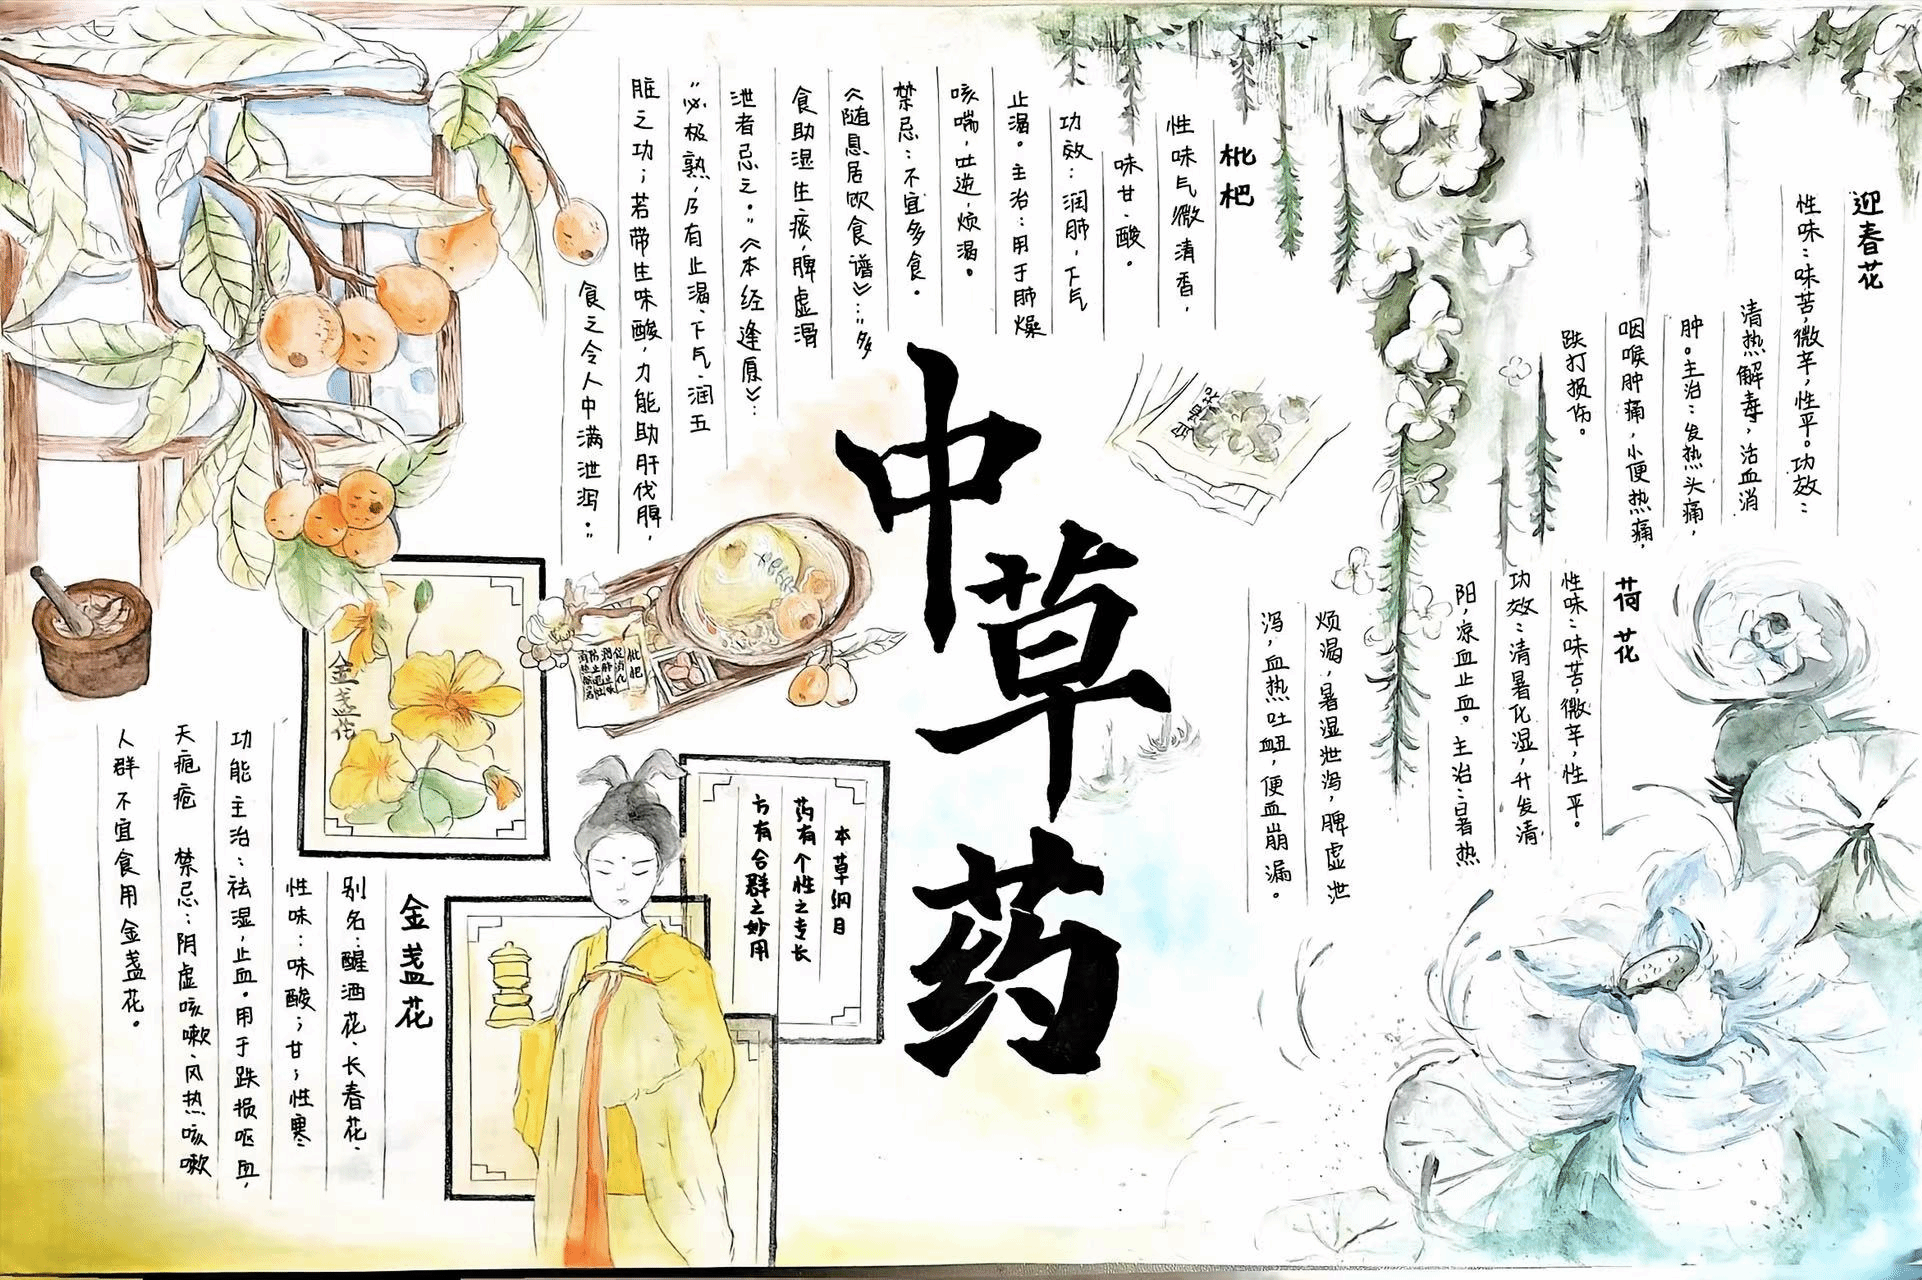 中草药
迎春花
性味：味苦，微辛，性平。功效：
清热解毒，活血消
肿。主治：发热头痛，
咽喉肿痛，小便热痛，
跌打损伤。
荷花
性味：味苦，微辛，性平。
功效：清暑化湿，升发清
阳，凉血止血。主治：暑热
烦渴，暑湿泄泻，脾虚泄
泻，血热吐衄，便血崩漏。
枇杷
性味气微清香，
味甘、酸。
功效：润肺，下气
止渴。主治：用于肺燥
咳喘，吐逆，烦渴。
禁忌：不宜多食。
《随息居饮食谱》：“多
食助湿生痰，脾虚滑
泄者忌之。”《本经逢原》：
“必极熟，乃有止渴、下气、润五
脏之功；若带生味酸，力能助肝伐脾，
食之令人中满泄泻。”
枇杷
促消化
润肺止咳
防止呕吐
金盏花
本草纲目
药有个性之专长
方有合群之妙用
金盏花
别名：醒酒花、长春花、
性味：味酸；甘；性寒
功能主治：祛湿，止血。用于跌损呕血，
天疱疮 禁忌：阴虚咳嗽、风热咳嗽
人群不宜食用金盏花。